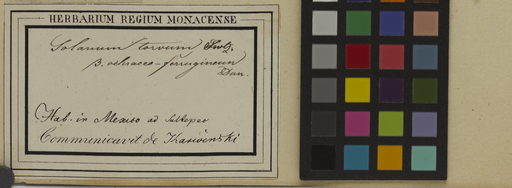 HERBARIUM REGIUM MONACENSE
Solanum torvum Swtz.
β. ochraceo-ferrugineum
Dun.
Hab. in Mexico ad Sultepec
Communicavit de Karwinski